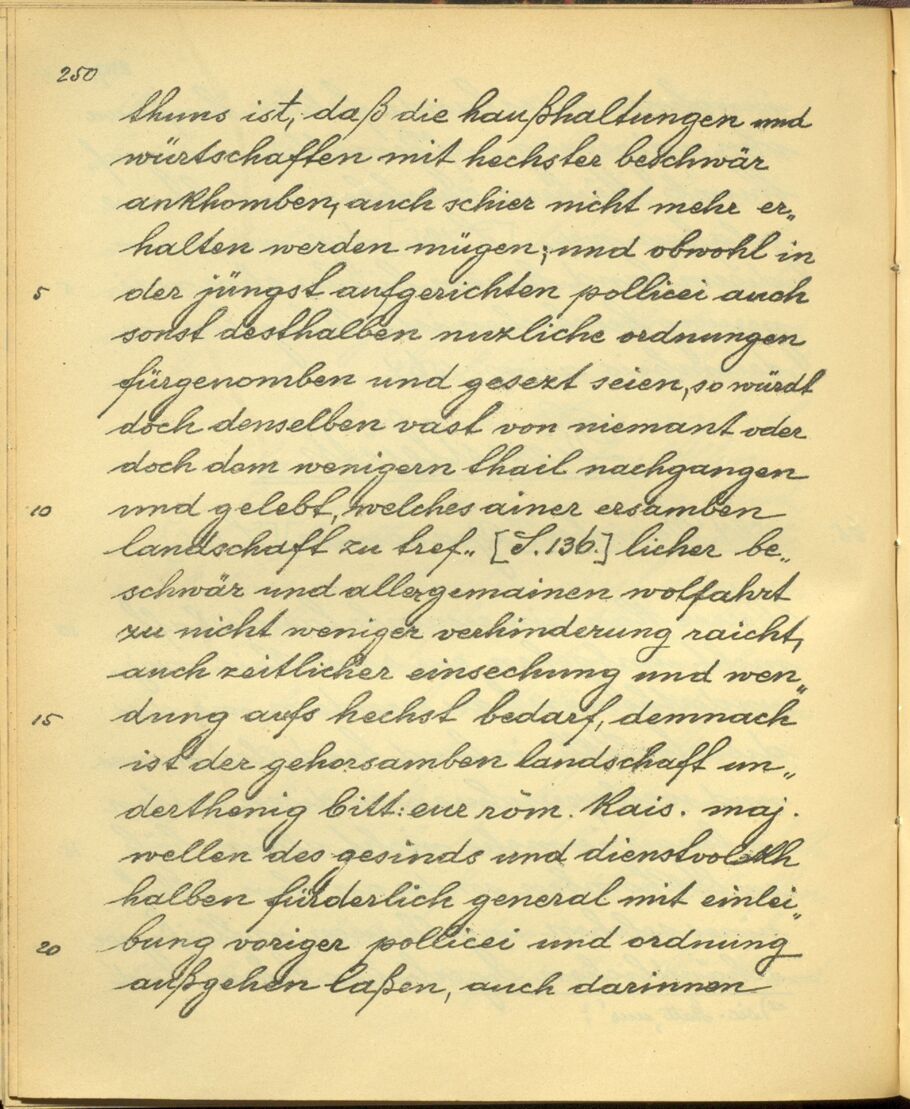 250
thuns ist, daß die haußhaltungen und
würtschaften mit hechster beschwär
ankhomben, auch schier nicht mehr er„
halten werden mügen; und obwohl in
5 der jüngst aufgerichten pollicei auch
sonst desthalben nuzliche ordnungen
fürgenomben und gesezt seien, so würdt
doch denselben vast von niemant oder
doch dem wenigern thail nachgangen
10 und gelebt, welches ainer ersamben
landschaft zu tref„ [S. 136.] licher be„
schwär und allergemainen wolfahrt
zu nicht weniger verhinderung raicht,
auch zeitlicher einsechung und wen„
15 dung aufs hechst bedarf, demnach
ist der gehorsamben landschaft un„
derthenig bitt: eur röm. Kais. maj.
wellen des gesinds und dienstvolkh
halben fürderlich general mit einlei„
20 bung voriger pollicei und ordnung
außgehen laßen, auch darinnen